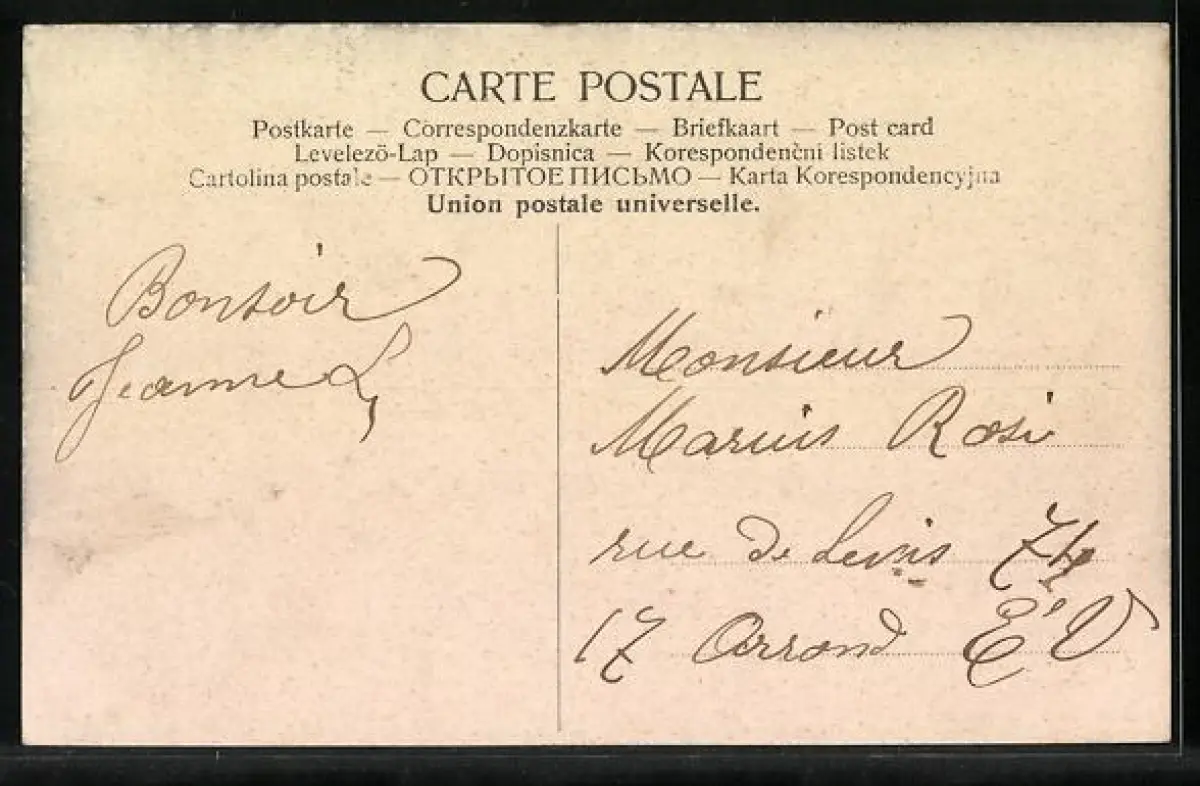 CARTE POSTALE
Postkarte — Correspondenzkarte — Briefkaart — Post card
Levelező-Lap — Dopisnica — Korespondenční listek
Cartolina postale — ОТКРЫТОЕ ПИСЬМО — Karta Korespondencyjna
Union postale universelle.
Bonsoir
Jeanne L
Monsieur
Marius Rosi
rue de Levis 74
17 Arrond E V